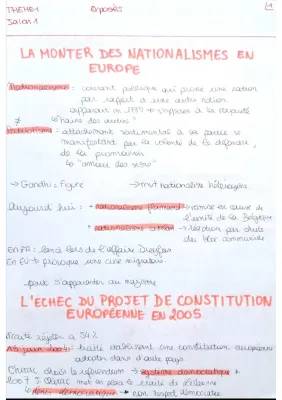 THEME 1
Exposés
1
Salon 1
LA MONTER DES NATIONALISMES EN
EUROPE
Nationalisme : courant politique qui prône une nation
par rapport à une autre nation
apparait en 1799 → s'impose à la royauté
≠ ↳ "haine des autres"
Patriotisme : attachement sentimental à sa patrie se
manifestant par la volonté de la défendre,
de la promouvoir
↳ "amour des siens"
→ Gandhi : figure → mvt nationaliste
Aujourd'hui : • nationalisme flamand → remise en cause de
l'unité de la Belgique
• nationalisme → réaction par chute
du bloc communiste
En FR : lors de l'affaire Dreyfus
En EU → provoque une crise migratoire
peut s'apparenter au nazisme
L'ECHEC DU PROJET DE CONSTITUTION
EUROPÉENNE EN 2005
Traité rejeter à 54%
traité établissant une constitution européenne
adoption dans d'autre pays
Chirac choisi le référendum → système démocratique
2007 : Sarkozy met en place le traité de Lisbonne
↳ démocratique → non respect démocratie